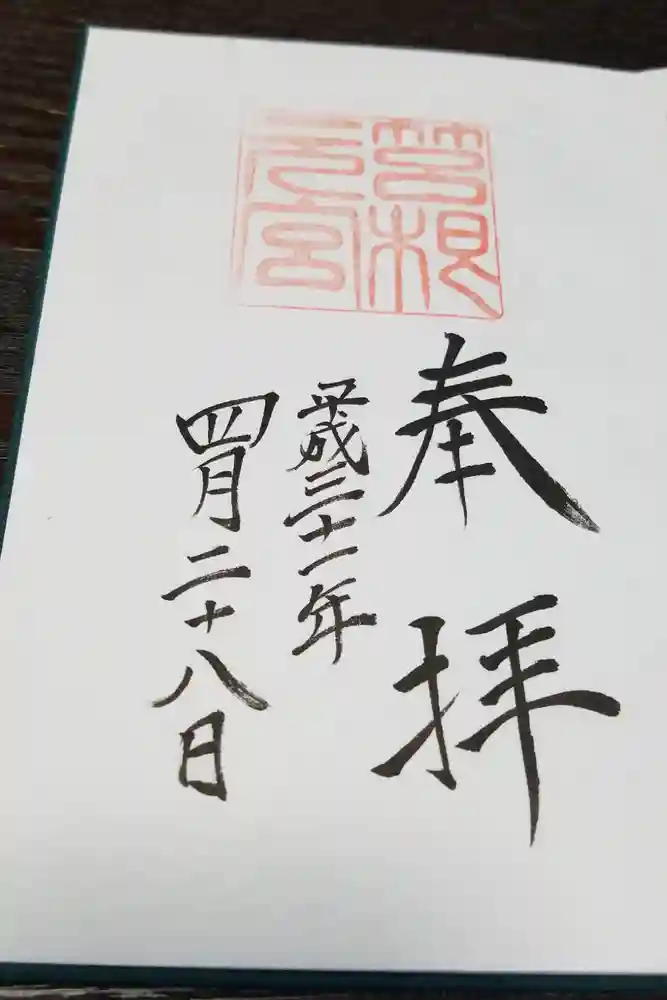 箱根
元宮
奉拝
平成三十一年
四月二十八日